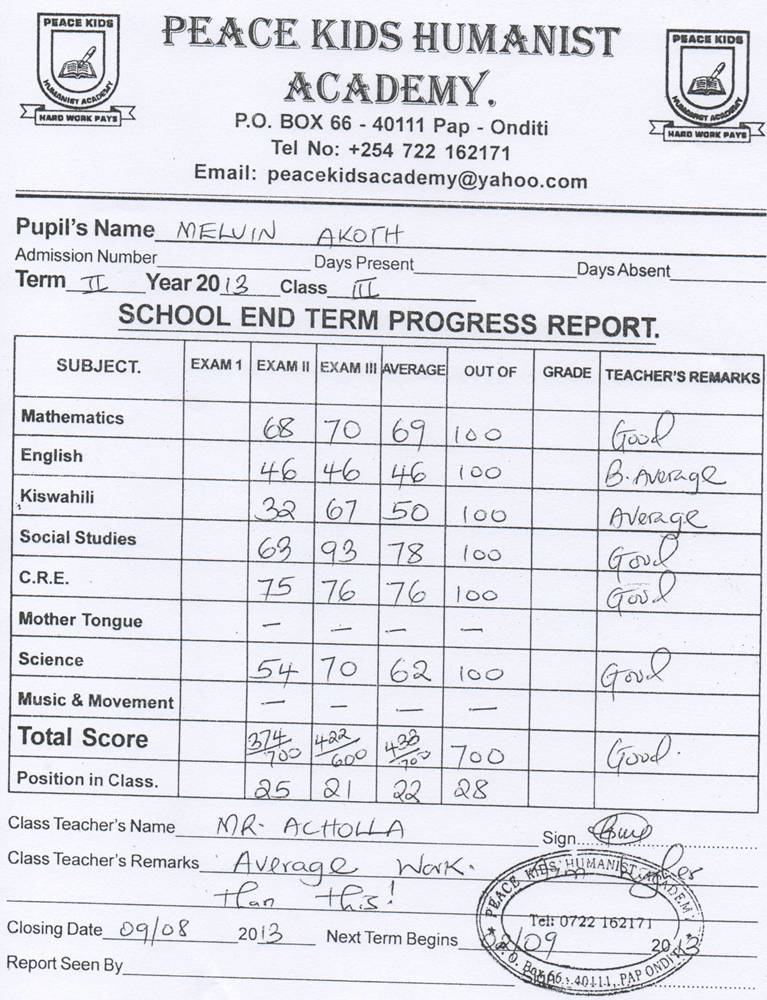 PEACE KIDS
HUMANIST ACADEMY
HARD WORK PAYS
PEACE KIDS HUMANIST
ACADEMY.
P.O. BOX 66 - 40111 Pap - Onditi
Tel No: +254 722 162171
Email: peacekidsacademy@yahoo.com
PEACE KIDS
HUMANIST ACADEMY
HARD WORK PAYS
Pupil's Name MELVIN AKOTH
Admission Number Days Present Days Absent
Term II Year 2013 Class III
SCHOOL END TERM PROGRESS REPORT.
SUBJECT. EXAM 1 EXAM II EXAM III AVERAGE OUT OF GRADE TEACHER'S REMARKS
Mathematics 68 70 69 100 Good
English 46 46 46 100 B. Average
Kiswahili 32 67 50 100 Average
Social Studies 63 93 78 100 Good
C.R.E. 75 76 76 100 Good
Mother Tongue — — — —
Science 54 70 62 100 Good
Music & Movement — — — —
Total Score 374/700 422/600 438/700 700 Good.
Position in Class. 25 21 22 28
Class Teacher's Name MR. ACHOLLA Sign
Class Teacher's Remarks Average Work. Aim higher
than this!
Closing Date 09/08 2013 Next Term Begins 02/09 2013
Report Seen By Sign
PEACE KIDS HUMANIST ACADEMY
Tel: 0722 162171
P.O. Box 66 - 40111, PAP ONDITI